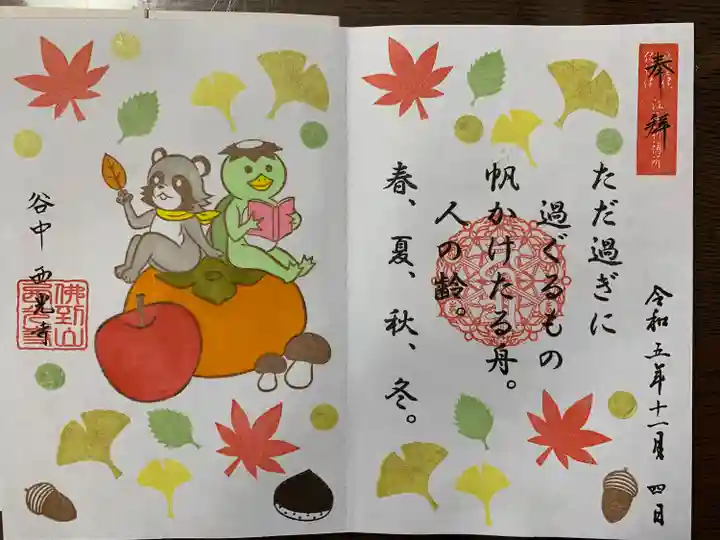 奉拝
ただ過ぎに
過ぐるもの
帆かけたる舟。
人の齢。
春、夏、秋、冬。
令和五年十一月 四日
谷中 西光寺